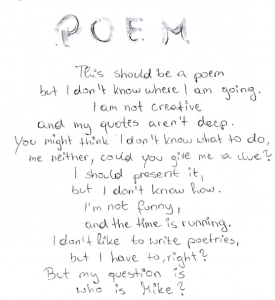 POEM
This should be a poem
but I don't know where I am going.
I am not creative
and my quotes aren't deep.
You might think I don't know what to do,
me neither, could you give me a clue?
I should present it,
but I don't know how.
I'm not funny,
and the time is running.
I don't like to write poetries,
but I have to, right?
But my question is
who is Mike?